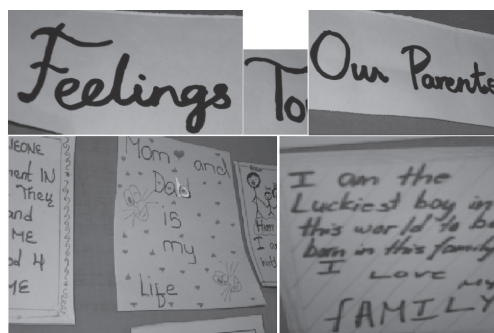 Feelings
To
Our Parents
EONE
ent IN
They
and
ME
d 4
ME
Mom and
Dad
is
my
Life
I am the
Luckiest boy in
this world to be
born in this family
I LOVE MY
FAMILY